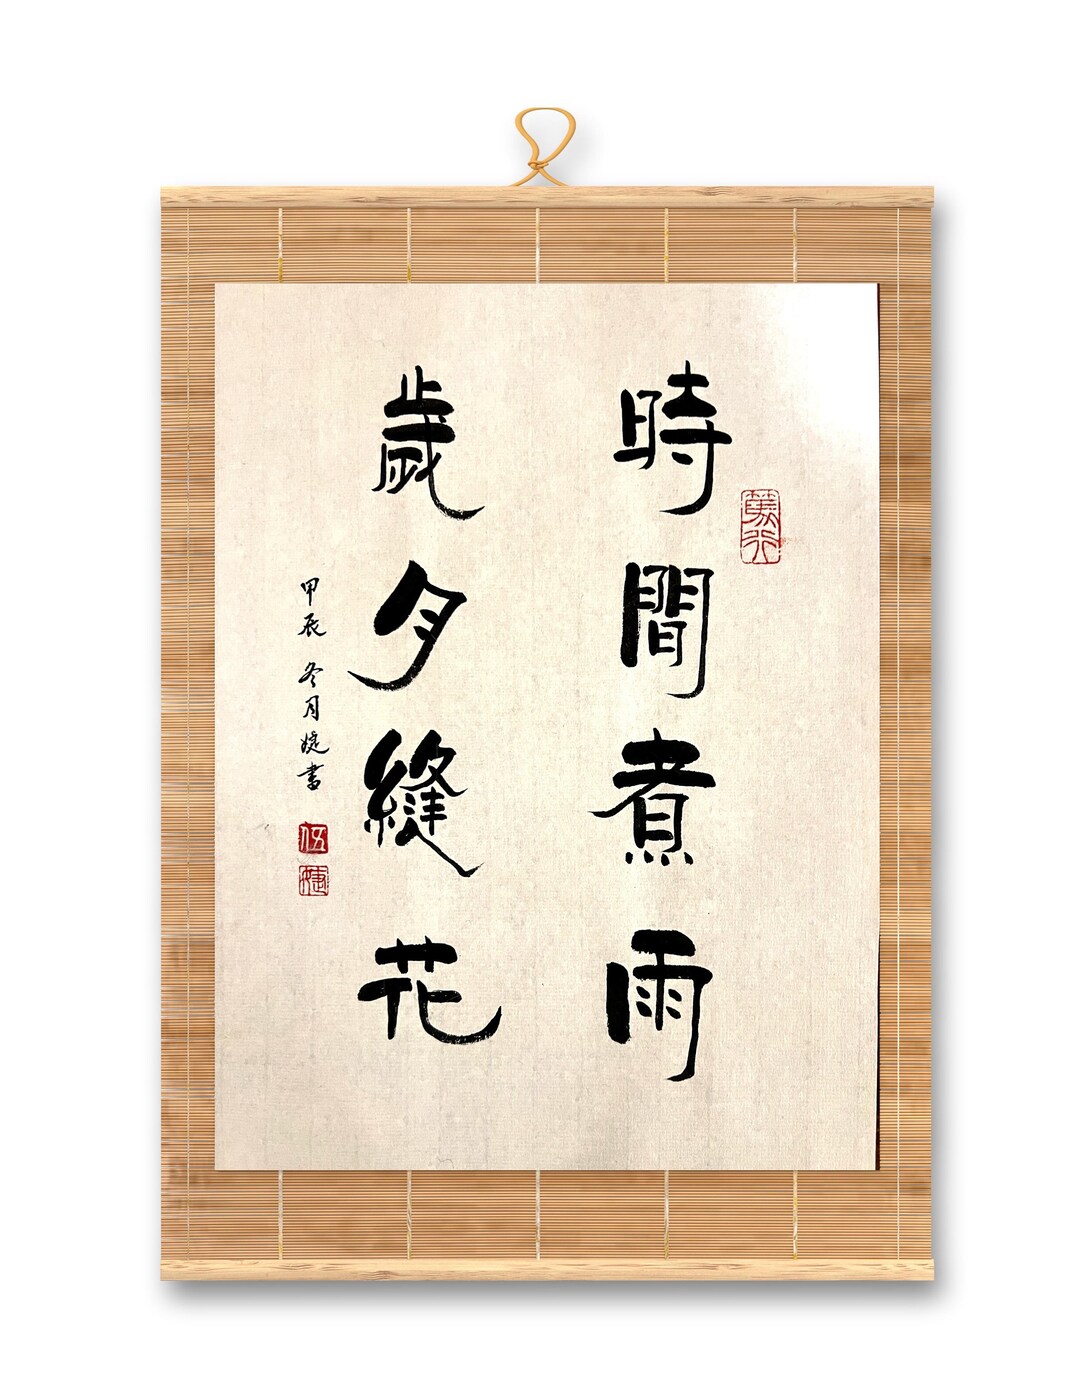 時間煮雨
歲月縫花
甲辰 冬月 婕書
伍
婕